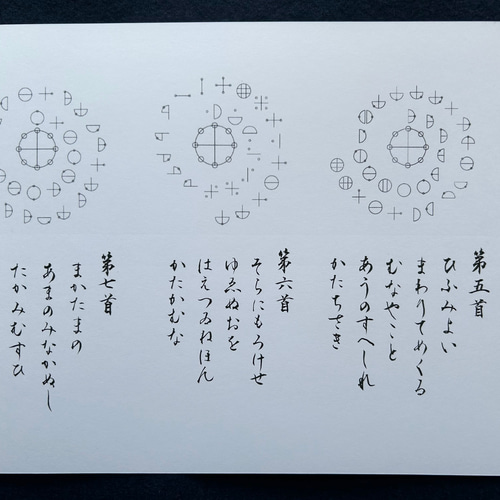 第五首
ひふみよい
まわりてめくる
むなやこと
あうのすへしれ
かたちさき
第六首
そらにもろけせ
ゆゑぬおを
はえつゐねほん
かたかむな
第七首
まかたまの
あまのみなかぬし
たかみむすひ